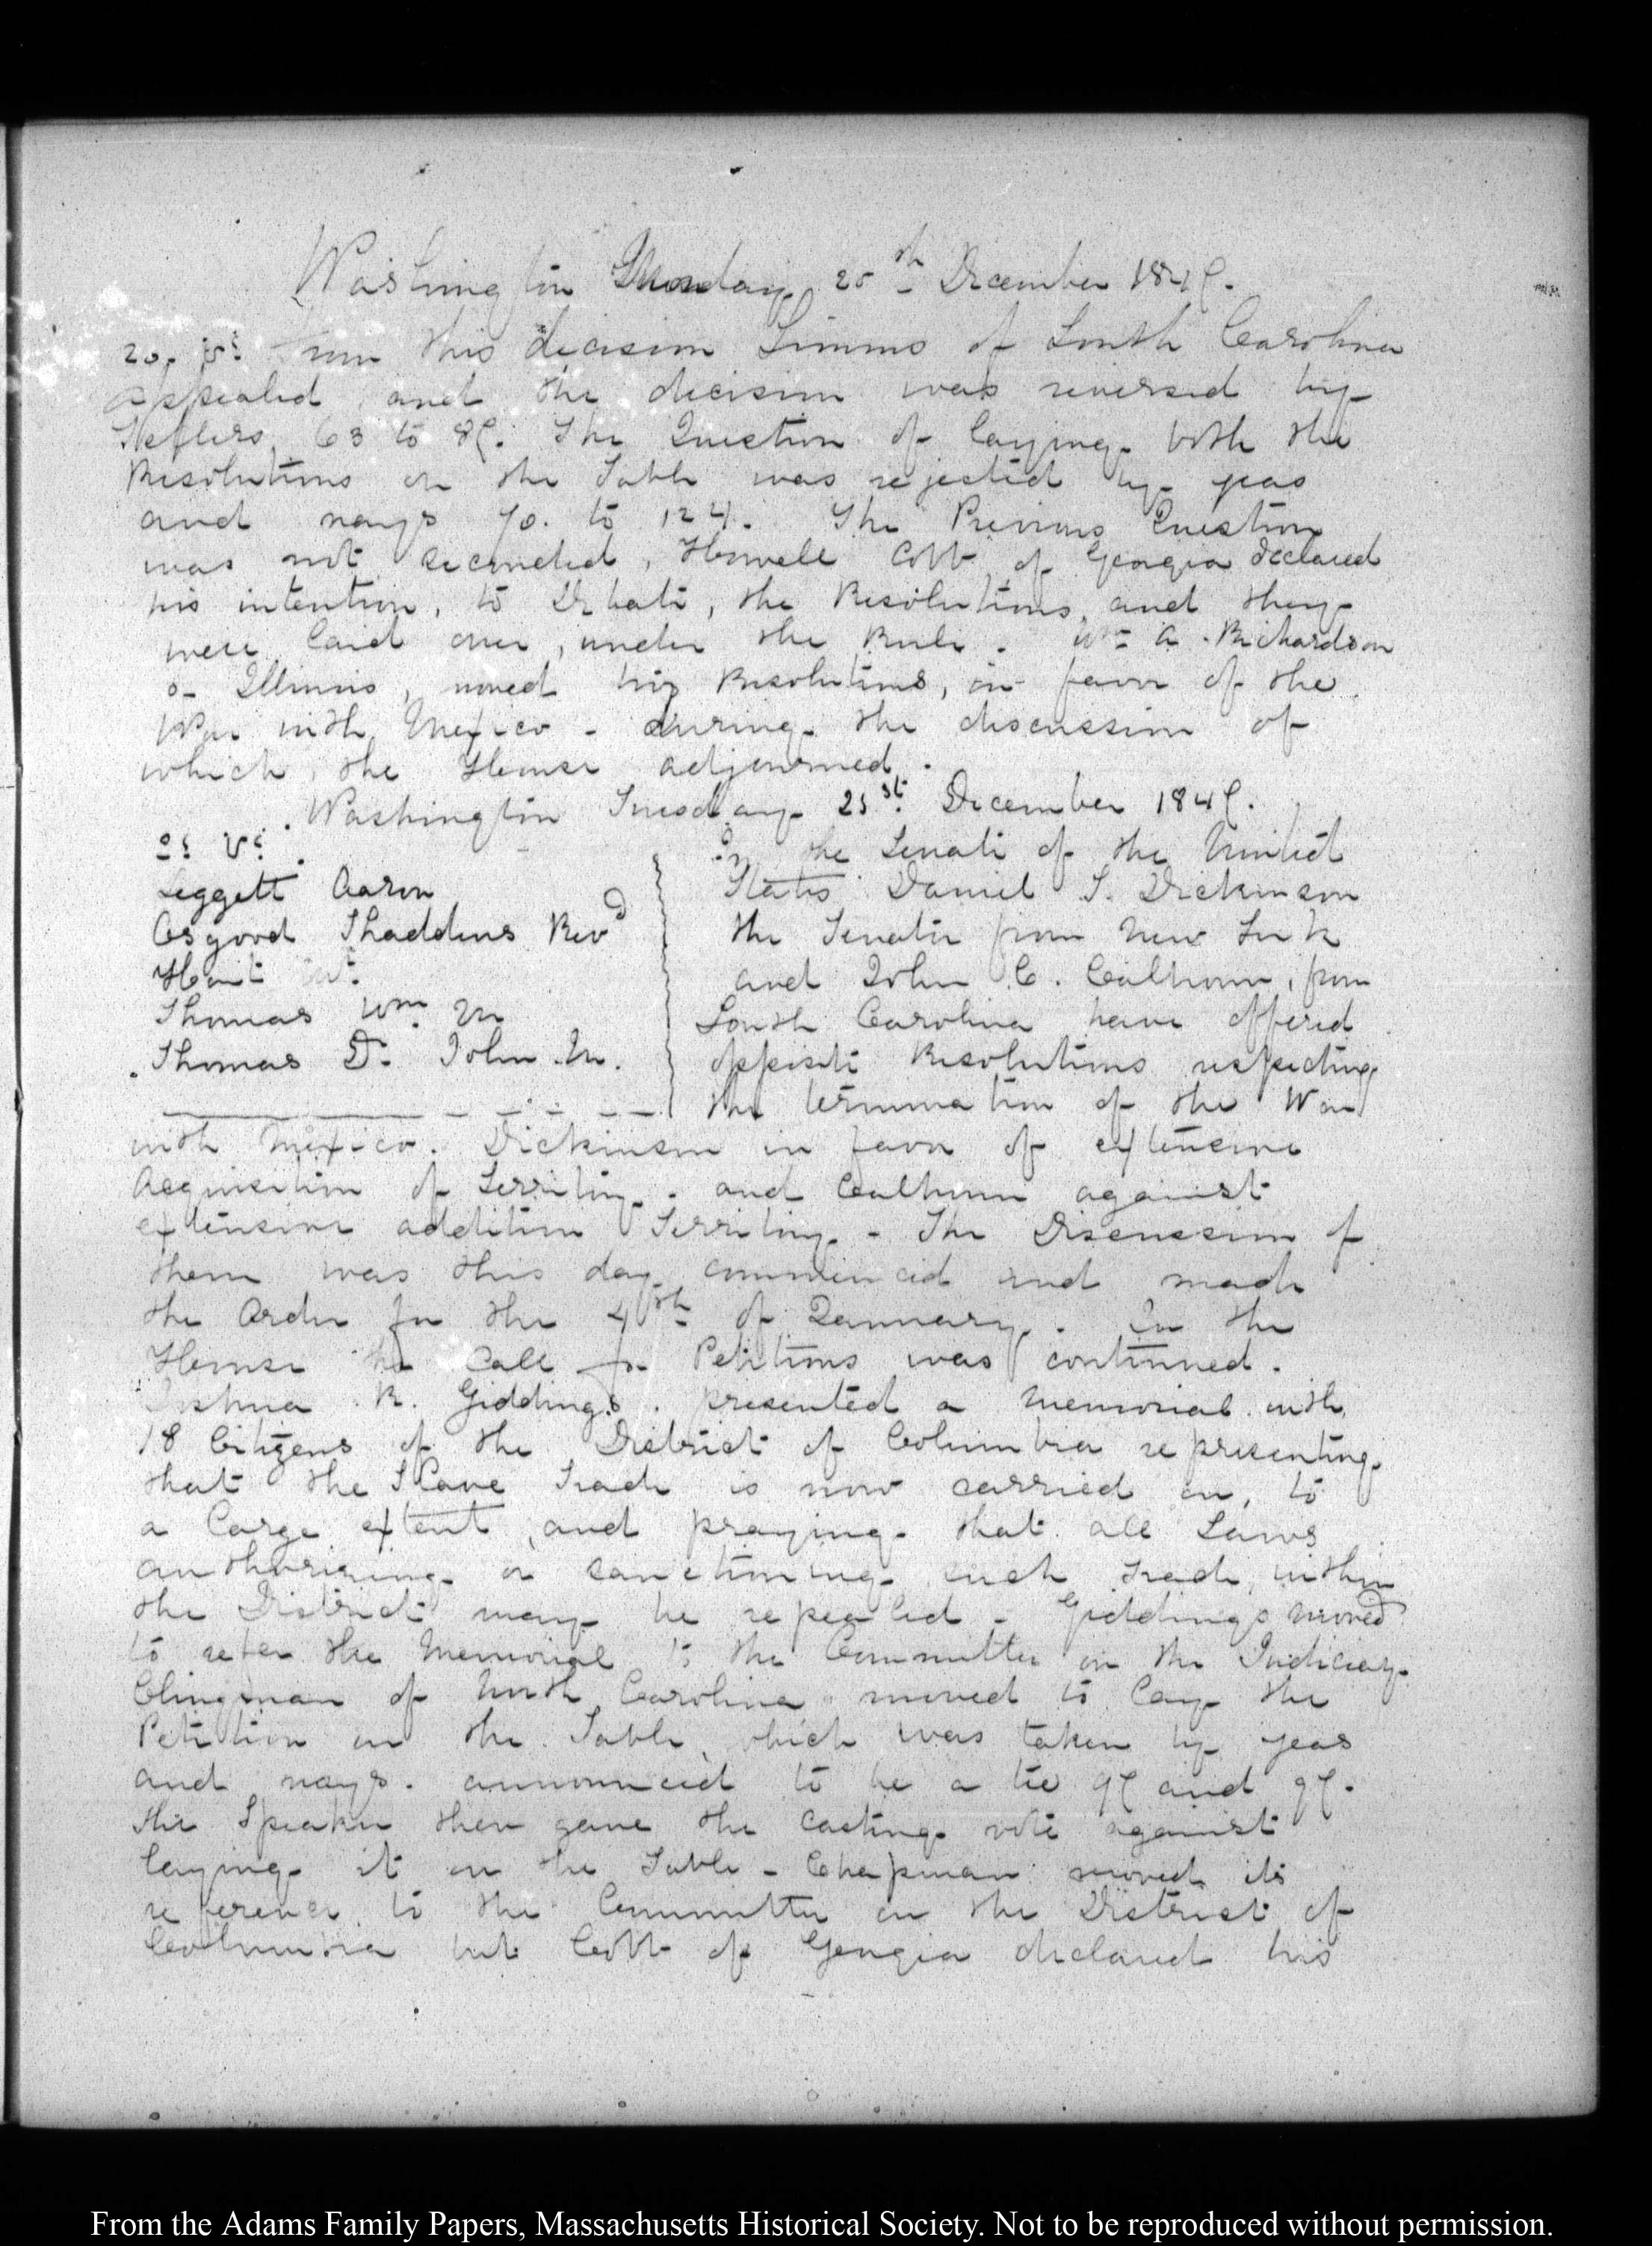 Washington Monday 20th December 1847.
20. V: From this decision Simms of South Carolina
appealed and the decision was reversed by
Tellers 63 to 87. The Question of laying both the
Resolutions on the Table was rejected by yeas
and nays 70. to 124. The Previous Question
was not seconded, Howell Cobb of Georgia declared
his intention, to Debate, the Resolutions, and they
were laid over, under the Rule. Wm A. Richardson
of Illinois, moved his Resolutions, in favor of the
War with Mexico - during the discussion of
which, the House adjourned.
Washington Tuesday 21st. December 1847.
21. V:
Leggett Aaron
Osgood Thaddeus Revd
Hart
Thomas Wm M
Thomas D. John M.
In the Senate of the United
States Daniel S. Dickinson
the Senator from New York
and John C. Calhoun, from
South Carolina have offered
opposite Resolutions respecting
the termination of the War
with Mexico. Dickinson in favor of extensive
Acquisition of Territory. and Calhoun against
extensive addition Territory - The Discussion of
them was this day commenced and made
the Order for the 4th of January. In the
House the Call for Petitions was continued.
Joshua R. Giddings. presented a memorial with
18 Citizens of the District of Columbia representing
that the Slave Trade is now carried on, to
a large extent, and praying that all Laws
authorising or sanctioning such trade, within
the District may be repealed - Giddings moved
to refer the Memorial to the Committee on the Judiciary.
Clingman of North Carolina moved to lay the
Petition on the Table, which was taken by yeas
and nays. announced to be a tie 97 and 97.
the Speaker then gave the casting vote against
laying it on the Table - Chapman moved its
reference to the Committee on the District of
Columbia but Cobb of Georgia declared his
From the Adams Family Papers, Massachusetts Historical Society. Not to be reproduced without permission.